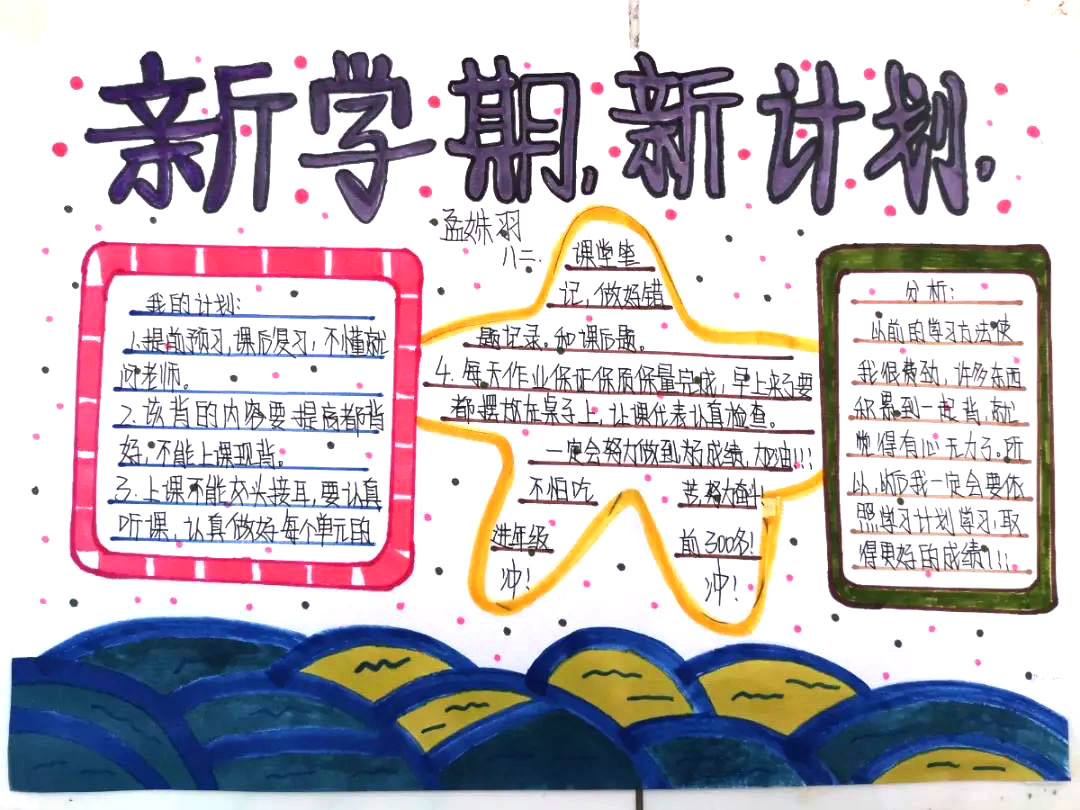 新学期,新计划,
孟姝羽
八二.
我的计划:
1.提前预习,课后复习,不懂就
问老师。
2.该背的内容要提高都背
好,不能上课现背。
3.上课不能交头接耳,要认真
听课,认真做好每个单元的
课堂笔
记,做好错
题记录。和课后题。
4.每天作业保证保质保量完成,早上来了要
都摆放在桌子上,让课代表认真检查。
一定会努力做到场成绩,加油!!!
不怕吃
苦,努力奋斗!
进年级
前300名!
冲!
冲!
分析:
以前的学习方法使
我很费劲,许多东西
积累到一起背,就
觉得有心无力了。所
以,以后我一定会要依
照学习计划学习,取
得更好的成绩!!!